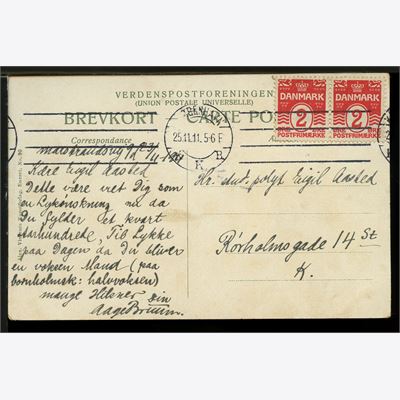 VERDENSPOSTFORENINGEN
(UNION POSTALE UNIVERSELLE)
BREVKORT CARTE POS
Correspondance
DANMARK
2
ØRE
POSTFRIMÆRKE
DANMARK
2
ØRE
POSTFRIMÆRKE
25.11.11. 5-6 F
K B
Kære Eigil Aasted
Dette være vret Dig som
en Lykønskning nu da
Du fylder et kvart
aarhundrede, Til Lykke
paa Dagen da Du bliver
en voksen Mand (paa
bornholmsk: halvvoksen)
mange Hilsner
Din
Aage Bruun.
Hr. stud. polyt Eigil Aasted
Rörholmsgade 14 St
K.